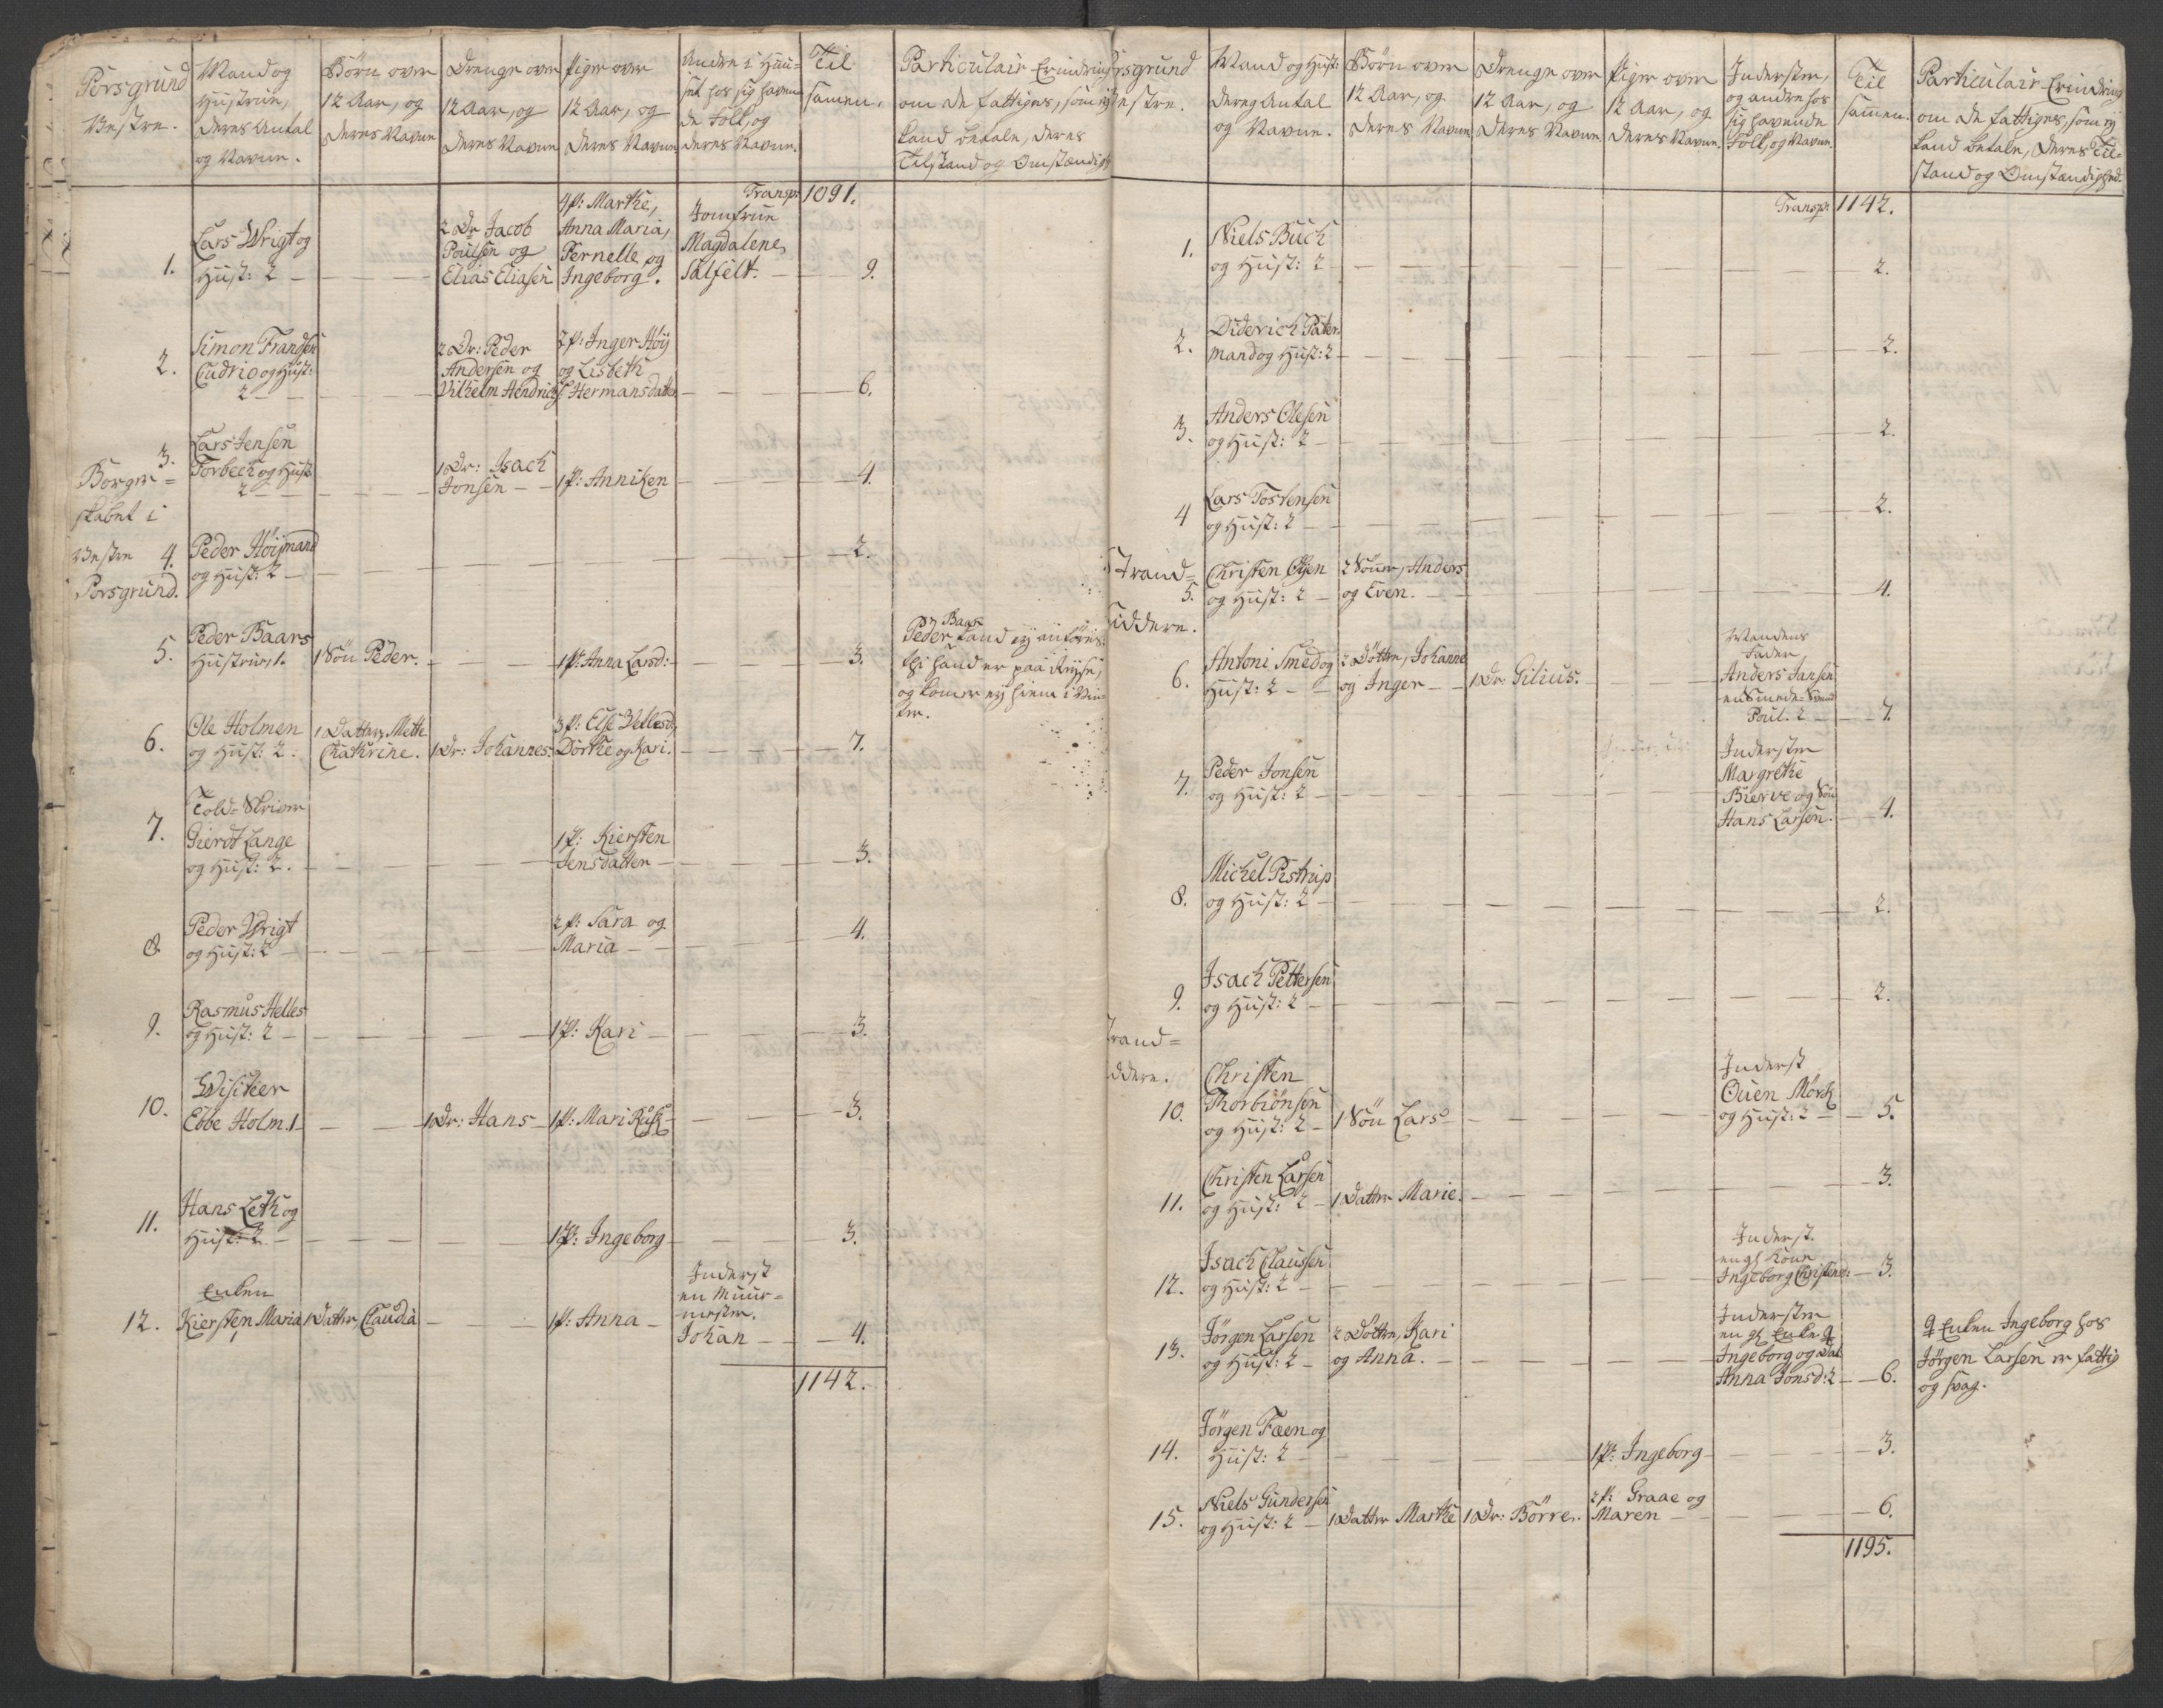 Porsgrund
Vestre.
Mand og
Hustrue,
deres Antal
og Navne.
Börn over
12 Aar, og
deres Navne
Drenge over
12 Aar, og
deres Navne
Piger over
12 Aar, og
deres Navne
Andre i Huu-
set hos sig havende
Folk, og
deres Navne.
Til
samen.
Particulair Erindring
om de fattiges, som ej
kand betale, deres
Tilstand og Omstændigh
Transp: 1091.
1.
Lars Wrigt og
Hust: 2
2 Dr Jacob
Poulsen og
Elias Eliasen
4 P: Marthe,
Anna Maria,
Pernelle og
Ingeborg.
Jomfrue
Magdalene
Salfelt.
9.
2.
Simon Frandsen
Cudrio og Hust:
2
2 Dr: Peder
Andersen og
Vilhelm Hendrichs:
2 P: Inger Höy
og Lisbeth
Hermansdatter
6.
Borger=
skabet i
Vestre
Porsgrund.
3.
Lars Jensen
Torbech og Hust:
2
1 Dr: Isach
Jonsen
1 P: Anniken
4.
4.
Peder Höijmand
og Hust: 2
2.
5.
Peder Baars
Hustrue, 1.
1 Sön Peder.
1 P: Anna Larsd:
3.
Peder Baars kand ej anföres,
thi hand er paa Reyse,
og komer ej hiem i Vin-
ter.
6.
Ole Holmen
og Hust: 2.
1 Datter Mette
Chathrine.
1 Dr: Johannes:
3 P: Else Vetlesd:
Dorthe og Kari.
7.
7.
Told-Skriver
Gierdt Lange
og Hust: 2.
1 P: Kiersten
Jensdatter
3.
8.
Peder Wrigt
og Hust: 2
2 P: Sara og
Maria
4.
9.
Rasmus Helles
og Hust: 2
1 P: Kari
3.
10.
Wisiteer
Ebbe Holm. 1
1 Dr: Hans
1 P: Mari Rusk
3.
11.
Hans Leth og
Hust: 2
1 P: Ingeborg
3.
12.
Enken
Kiersten Maria
1
1 Datter, Claudia
1 P: Anna
Inderst
en Muur-
mester.
Johan
4.
1142.
Porsgrund
Vestre.
Mand og Hust:
deres Antal
og Navne.
Börn over
12 Aar, og
deres Navne
Drenge over
12 Aar, og
deres Navne
Piger over
12 Aar, og
deres Navne.
Inderster,
og andre hos
sig havende
Folk, og Navne.
Til
sammen.
Particulair Erindring
om de fattiges, som ej
kand betale, deres Til=
stand og Omstændighed.
Transp: 1142.
1.
Niels Buch
og Hust: 2
2.
2.
Diderich Pater
mand og Hust: 2
2.
3.
Anders Olesen
og Hust: 2
2.
4
Lars Tostensen
og Hust: 2
2.
Strand=
siddere.
5.
Christen Olsen
og Hust: 2
2 Sönner, Anders
og Even.
4.
6.
Antoni Smed og
Hust: 2
2 Döttre, Johanne
og Inger
1 Dr: Gilius.
Mandens
Fader,
Anders Jansen
en Smede-Svend
Poul. 2
7.
7.
Peder Jonsen
og Hust: 2
Inderster
Margrethe
Bierve og Sön
Hans Larsen.
4.
8.
Michel Pistrup
og Hust: 2
2.
9.
Isach Pettersen
og Hust: 2
2.
Strand=
siddere.
10.
Christen
Thorbiönsen
og Hust: 2
1 Sön Lars
Inderst
Ouen Mörch
og Hust: 2
5.
11.
Christen Larsen
og Hust: 2
1 Datter Marie.
3.
12.
Isach Claussen
og Hust: 2
Inderst.
en gl Kone
Ingeborg Christensd:
3.
13.
Jörgen Larsen
og Hust: 2
2 Döttre, Kari
og Anna.
Inderster
en gl Enke
Ingeborg og Dat:
Anna Jonsd: 2
6.
Enken Ingeborg hos
Jörgen Larsen er fattig
og svag.
14.
Jörgen Faen og
Hust: 2
1 P: Ingeborg
3.
15.
Niels Gundersen
og Hust: 2
1 Datter Marthe
1 Dr: Börre.
2 P: Graae og
Maren
6.
1195.